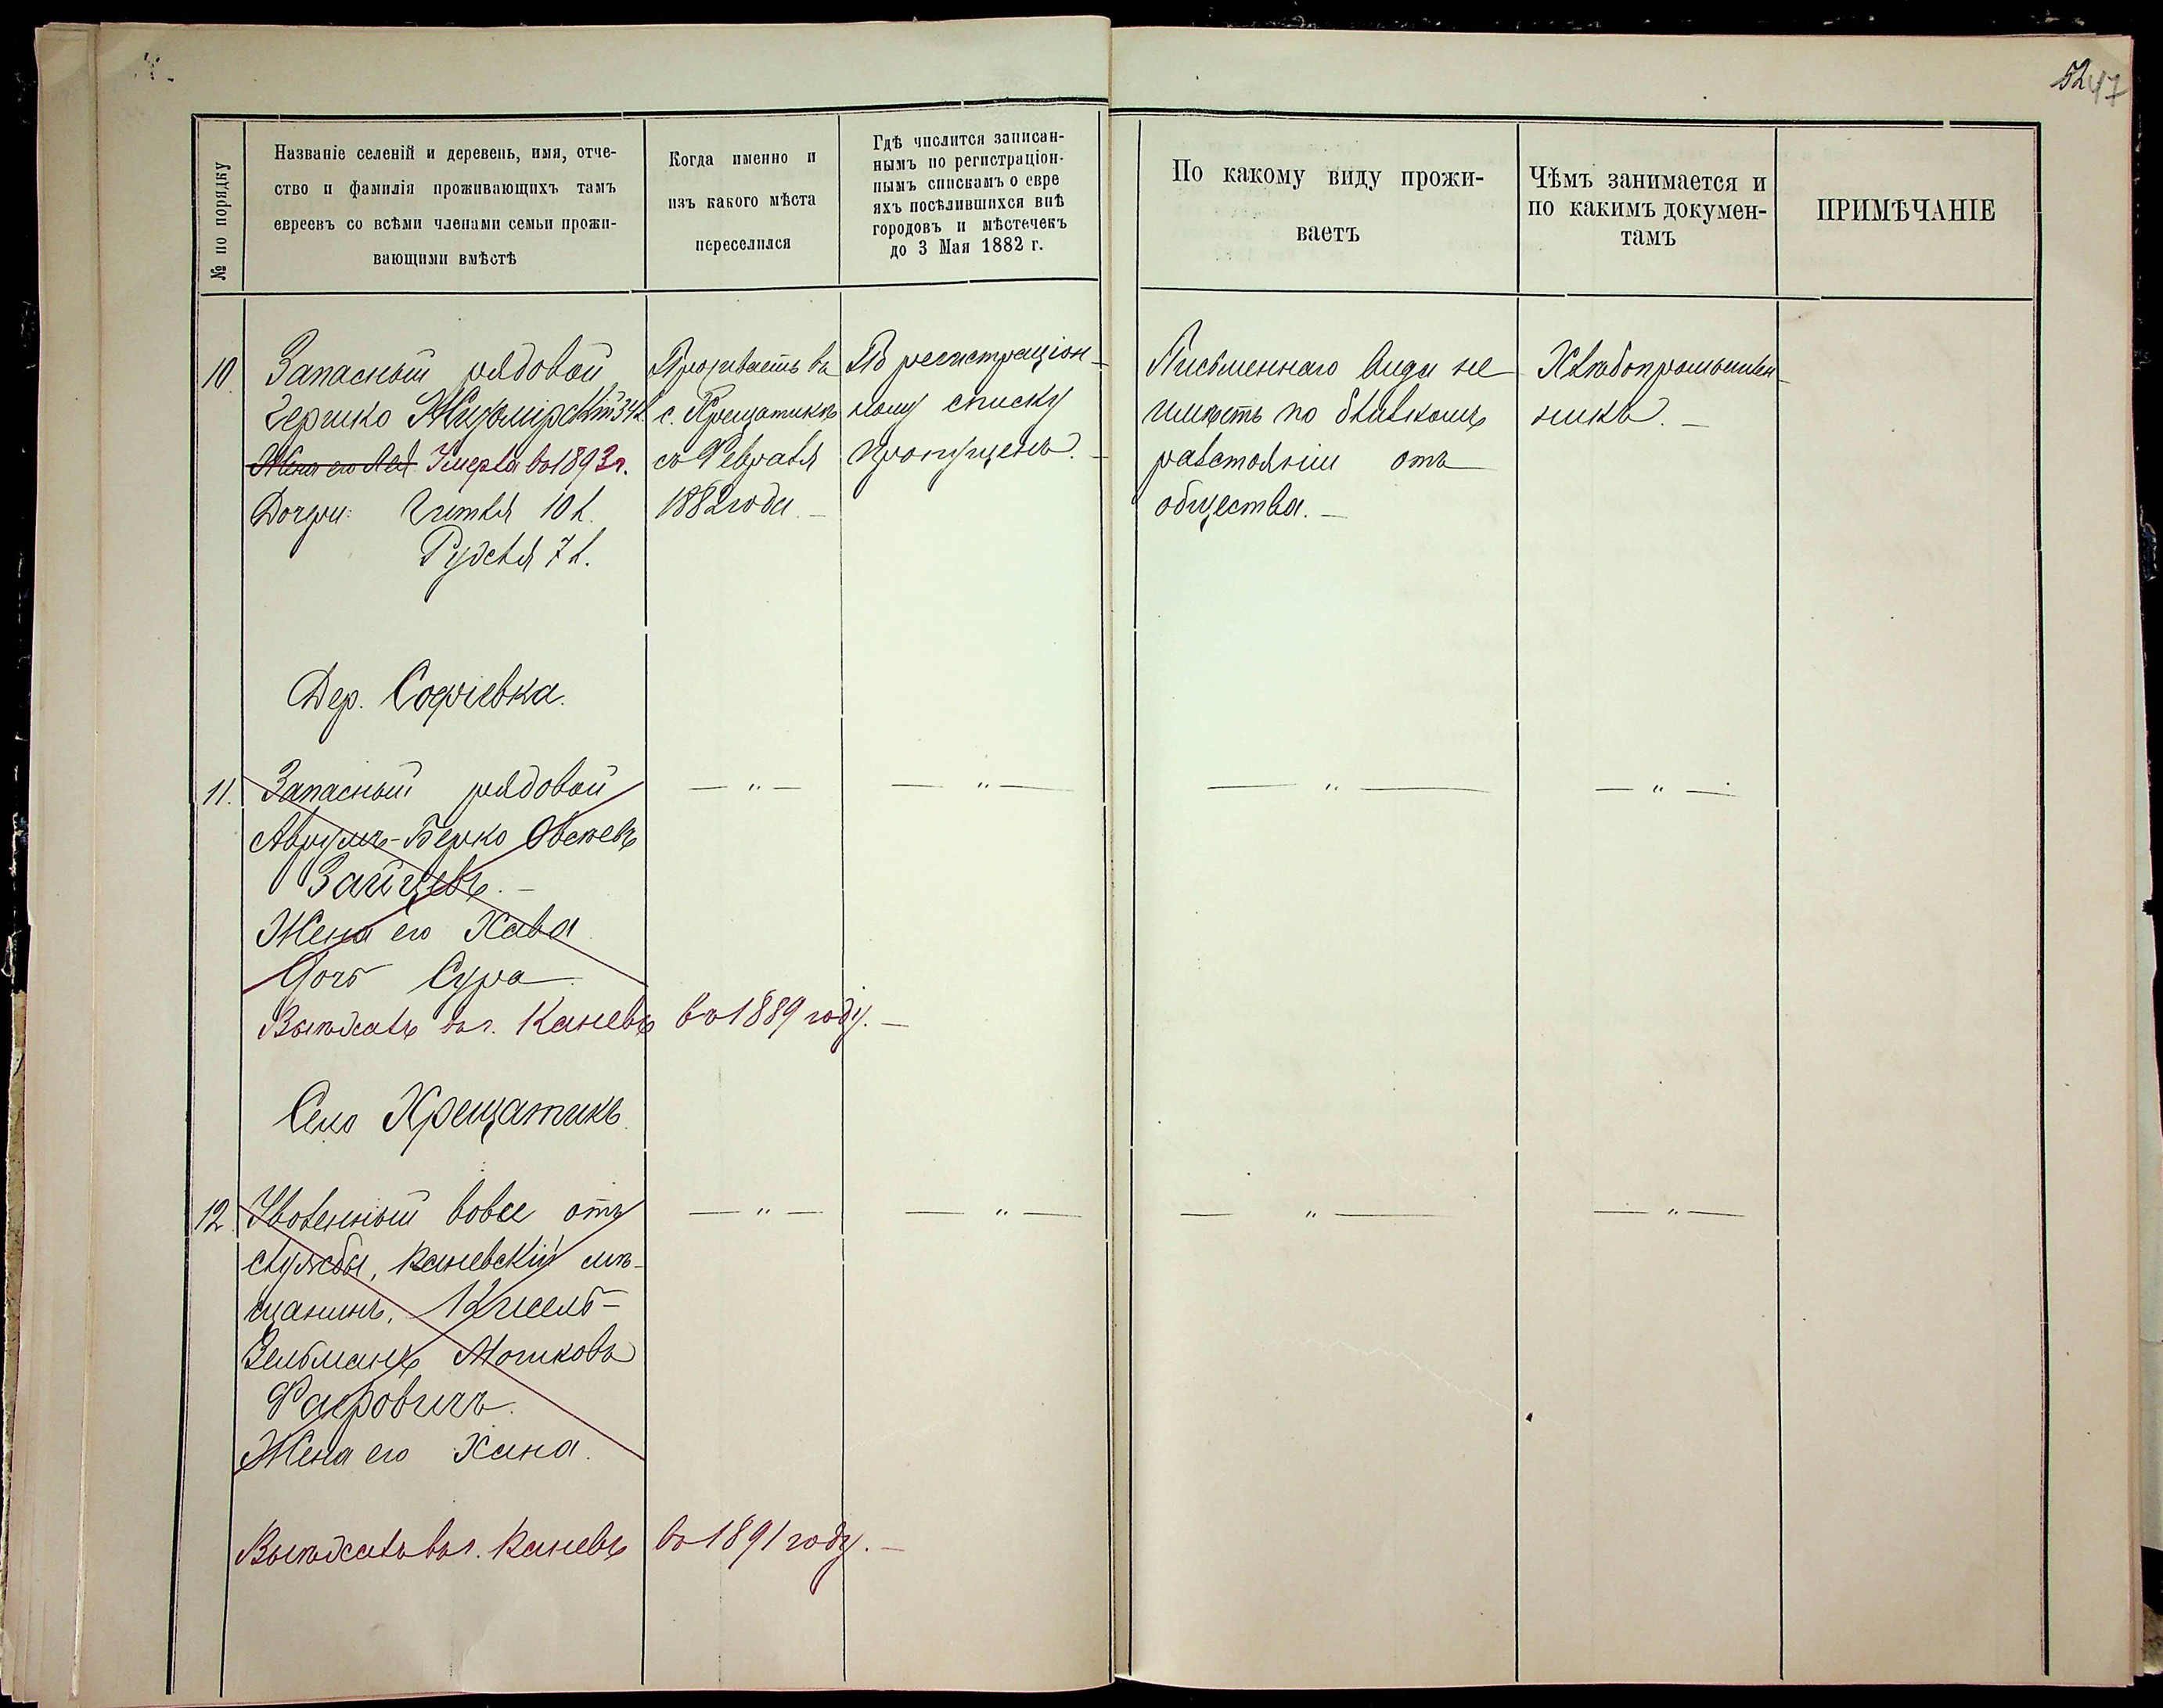 5247
№ по порядку
Названіе селеній и деревень, имя, отче-
ство и фамилія проживающихъ тамъ
евреевъ со всѣми членами семьи прожи-
вающими вмѣстѣ
Когда именно и
изъ какого мѣста
переселился
Гдѣ числится записан-
нымъ по регистраціон-
нымъ спискамъ о евре
яхъ посѣлившихся внѣ
городовъ и мѣстечекъ
до 3 Мая 1882 г.
По какому виду прожи-
ваетъ
Чѣмъ занимается и
по какимъ докумен-
тамъ
ПРИМѢЧАНІЕ
10
Запасный рядовой
Гершко Житмірскій 34 л.
Жена его Лея Умерла въ 1893 г.
Дочери: Гитля 10 л.
Рудсля 7 л.
Проживаетъ въ
с. Крещатикъ
съ Февраля
1882 года. —
По регистраціон-
ному списку
пропущенъ. —
Письменнаго вида не
имѣетъ по близкомъ
разстояніи отъ
общества. —
Хлѣбопромышлен-
никъ. —
Дер. Софіевка.
11.
Запасный рядовой
Аврумъ-Берко Овсѣевъ
Зайцевъ. —
Жена его Хава
Дочь Сура
— " —
— " —
— " —
— " —
Выѣхалъ въ г. Каневъ въ 1889 году. —
Село Хрещатикъ
12
Уволенный вовсе отъ
службы, Каневскій мѣ-
щанинъ, Кисель-
Зельманъ Мошковъ
Фаеровичъ.
Жена его Хана.
— " —
— " —
— " —
— " —
Выѣхалъ въ г. Каневъ въ 1891 году. —